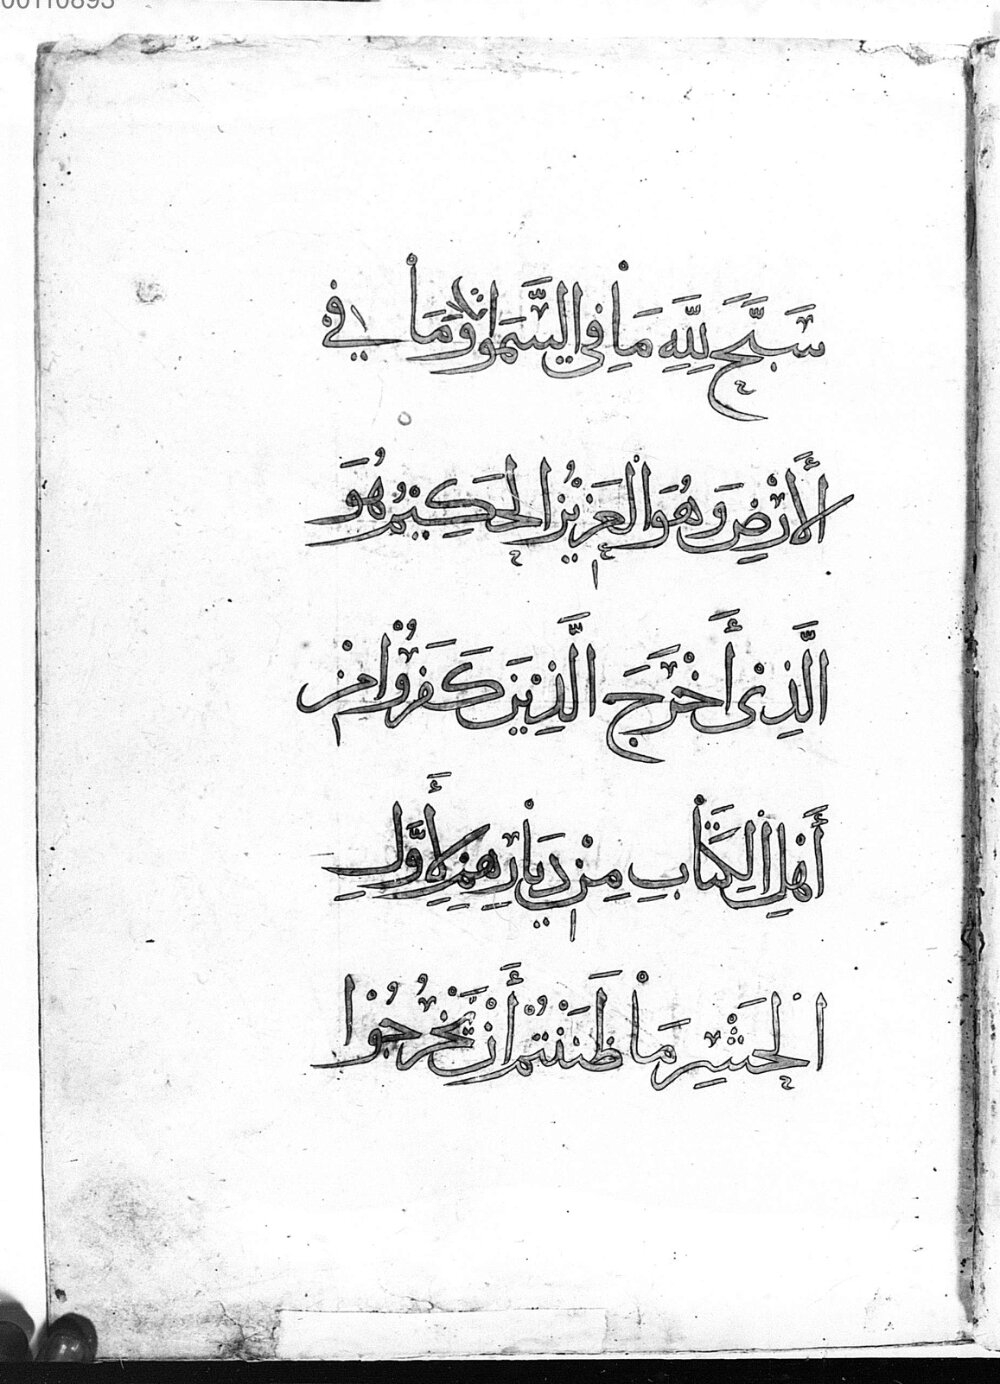 00110893
سَبَّحَ لِلَّهِ مَا فِي السَّمَوَاتِ وَمَا فِي
الْأَرْضِ وَهُوَ الْعَزِيزُ الْحَكِيمُ هُوَ
الَّذِي أَخْرَجَ الَّذِينَ كَفَرُوا مِنْ
أَهْلِ الْكِتَابِ مِنْ دِيَارِهِمْ لِأَوَّلِ
الْحَشْرِ مَا ظَنَنْتُمْ أَنْ يَخْرُجُوا